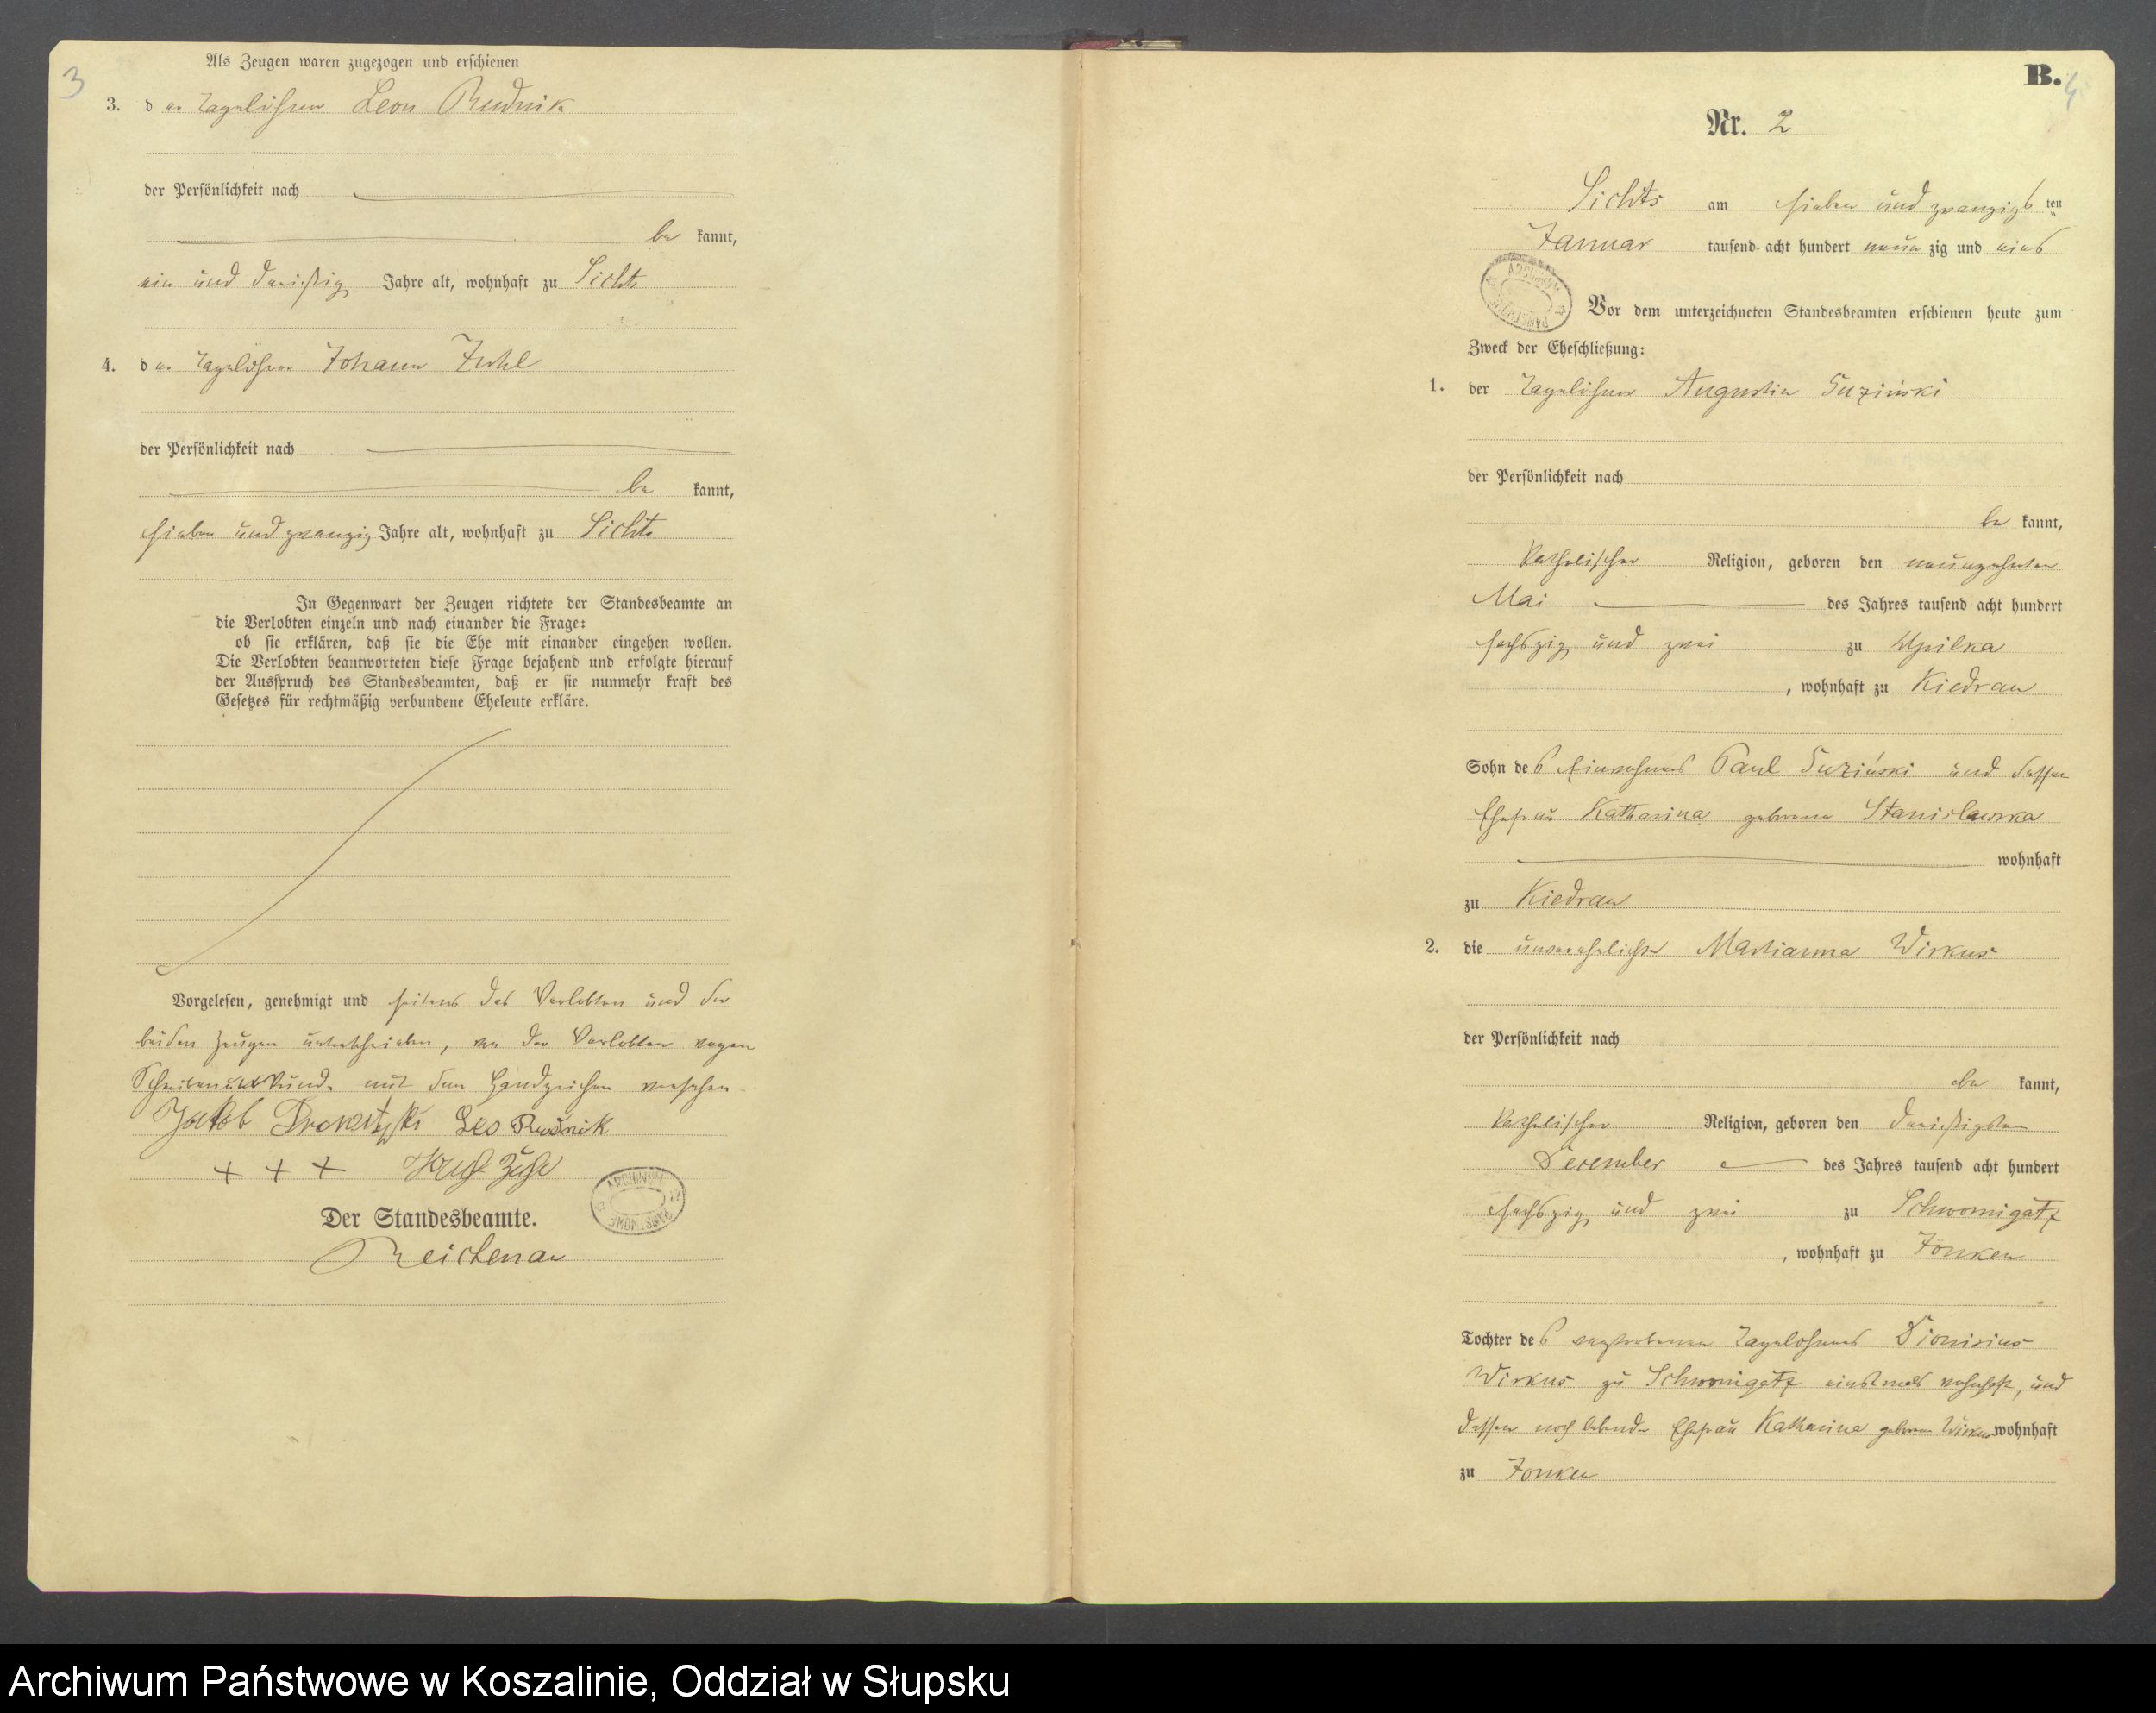 3
Als Zeugen waren zugezogen und erschienen
3. der Tagelöhner Leon Rudnik
der Persönlichkeit nach
be kannt,
ein und dreißig Jahre alt, wohnhaft zu Lichts
4. der Tagelöhner Johann
der Persönlichkeit nach
be kannt,
sieben und zwanzig Jahre alt, wohnhaft zu Lichts
In Gegenwart der Zeugen richtete der Standesbeamte an
die Verlobten einzeln und nach einander die Frage:
ob sie erklären, daß sie die Ehe mit einander eingehen wollen.
Die Verlobten beantworteten diese Frage bejahend und erfolgte hierauf
der Ausspruch des Standesbeamten, daß er sie nunmehr kraft des
Gesetzes für rechtmäßig verbundene Eheleute erkläre.
Vorgelesen, genehmigt und seitens des Verlobten und der
beiden Zeugen unterschrieben, von der Verlobten wegen
mit dem Handzeichen versehen.
Jakob Leo Rudnik
+ + +
Der Standesbeamte.
Reichenau
B.
4
Nr. 2
Lichts am sieben und zwanzigs ten
Januar tausend acht hundert neun zig und eins
Vor dem unterzeichneten Standesbeamten erschienen heute zum
Zweck der Eheschließung:
1. der Tagelöhner Augustin Suziński
der Persönlichkeit nach
be kannt,
katholischer Religion, geboren den neunzehnten
Mai des Jahres tausend acht hundert
sechszig und zwei zu Upilka
, wohnhaft zu Kiedrau
Sohn des Einwohners Paul Suziński und dessen
Ehefrau Katharina geborene Stanislawska
wohnhaft
zu Kiedrau
2. die unverehelichte Marianna Wirkus
der Persönlichkeit nach
be kannt,
katholischer Religion, geboren den dreißigsten
December des Jahres tausend acht hundert
sechszig und zwei zu Schwornigatz
, wohnhaft zu Fonken
Tochter des verstorbenen Tagelöhners Dionisius
Wirkus zu Schwornigatz einstmals wohnhaft, und
dessen noch lebende Ehefrau Katharina geborene Wirkus wohnhaft
zu Fonken
Archiwum Państwowe w Koszalinie, Oddział w Słupsku